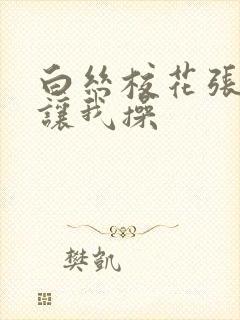 白絲校花張腿
讓我操
樊凱